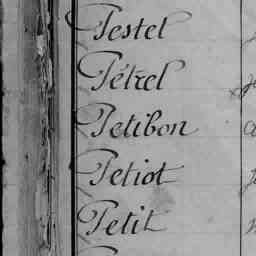 Pestel
Pétrel
Petibon
Petiot
Petit